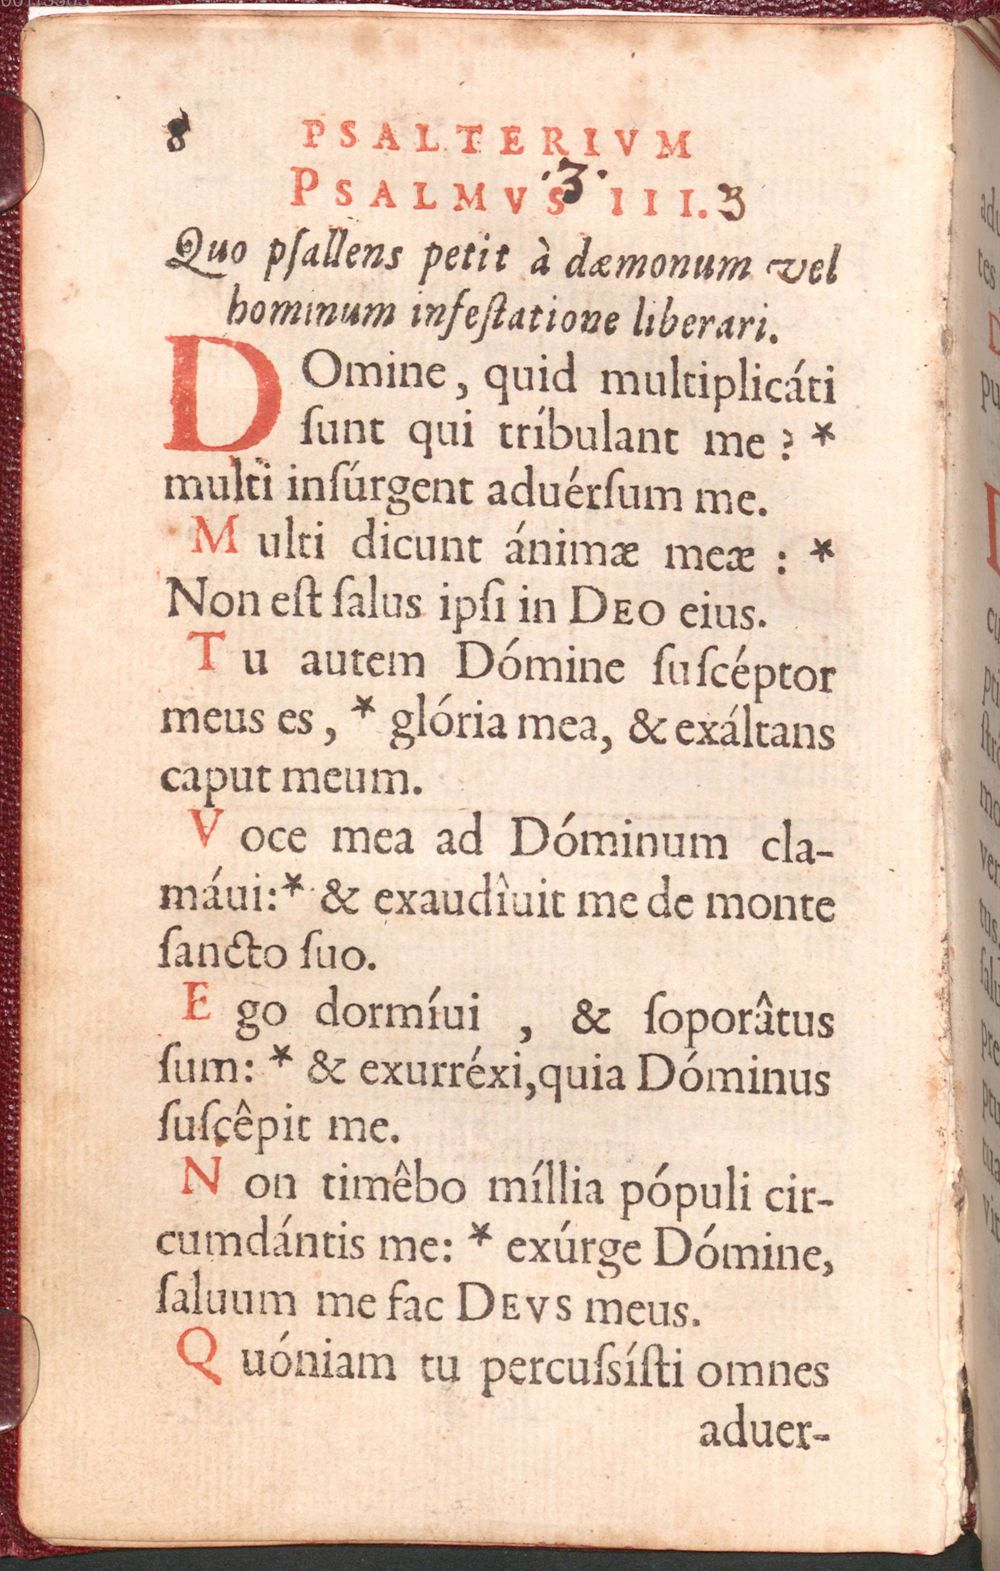 8 PSALTERIVM
PSALMVS III. 3
·3·
Quo pſallens petit à dæmonum vel
hominum infeſtatione liberari.
DOmine, quid multiplicáti
ſunt qui tríbulant me? *
multi inſúrgent aduérſum me.
Multi dicunt ánimæ meæ : *
Non eſt ſalus ipſi in DEO eius.
Tu autem Dómine ſuſcéptor
meus es, * glória mea, & exáltans
caput meum.
Voce mea ad Dóminum cla-
máui:* & exaudîuit me de monte
ſancto ſuo.
Ego dormíui , & ſoporâtus
ſum: * & exurréxi,quia Dóminus
ſuſcêpit me.
Non timêbo míllia pópuli cir-
cumdántis me: * exúrge Dómine,
ſaluum me fac DEVS meus.
Quóniam tu percuſsíſti omnes
aduer-